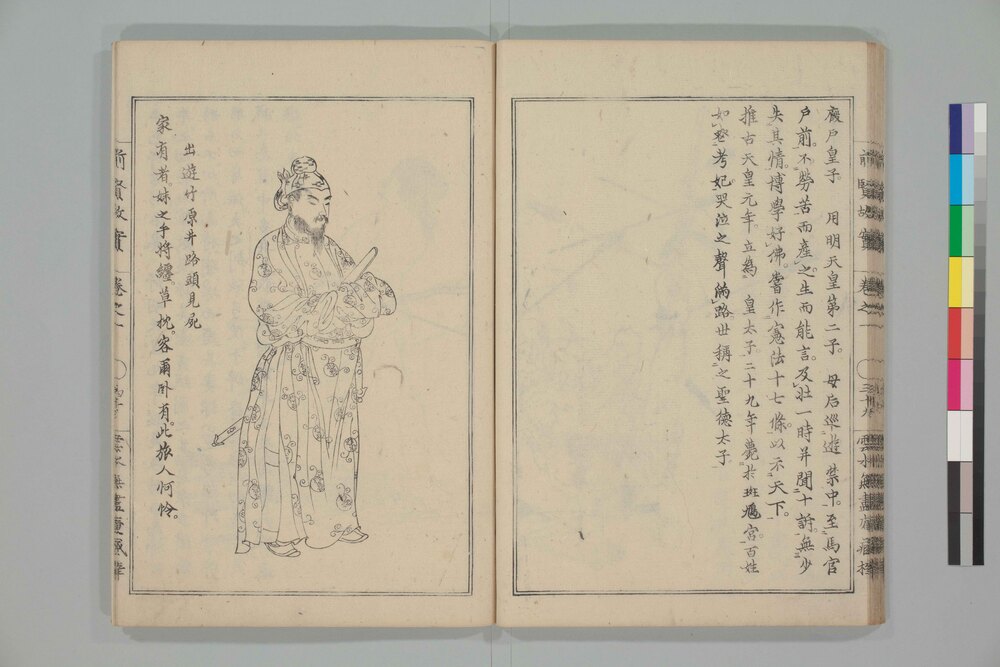 廐戸皇子 用明天皇第二子。母后巡遊禁中。至馬官
戸前。不勞苦而產之。生而能言。及壯一時并聞十訴。無少
失其情。博學好佛。嘗作憲法十七條。以示天下。
推古天皇元年。立為 皇太子。二十九年。薨於斑鳩宮。百姓
如喪考妣。哭泣之聲滿路。世稱之聖德太子
出遊竹原井路頭見死
家有者。妹之手將纏。草枕。客爾卧有。此旅人何怜。
前賢故實
卷之一
前賢故實
卷之一